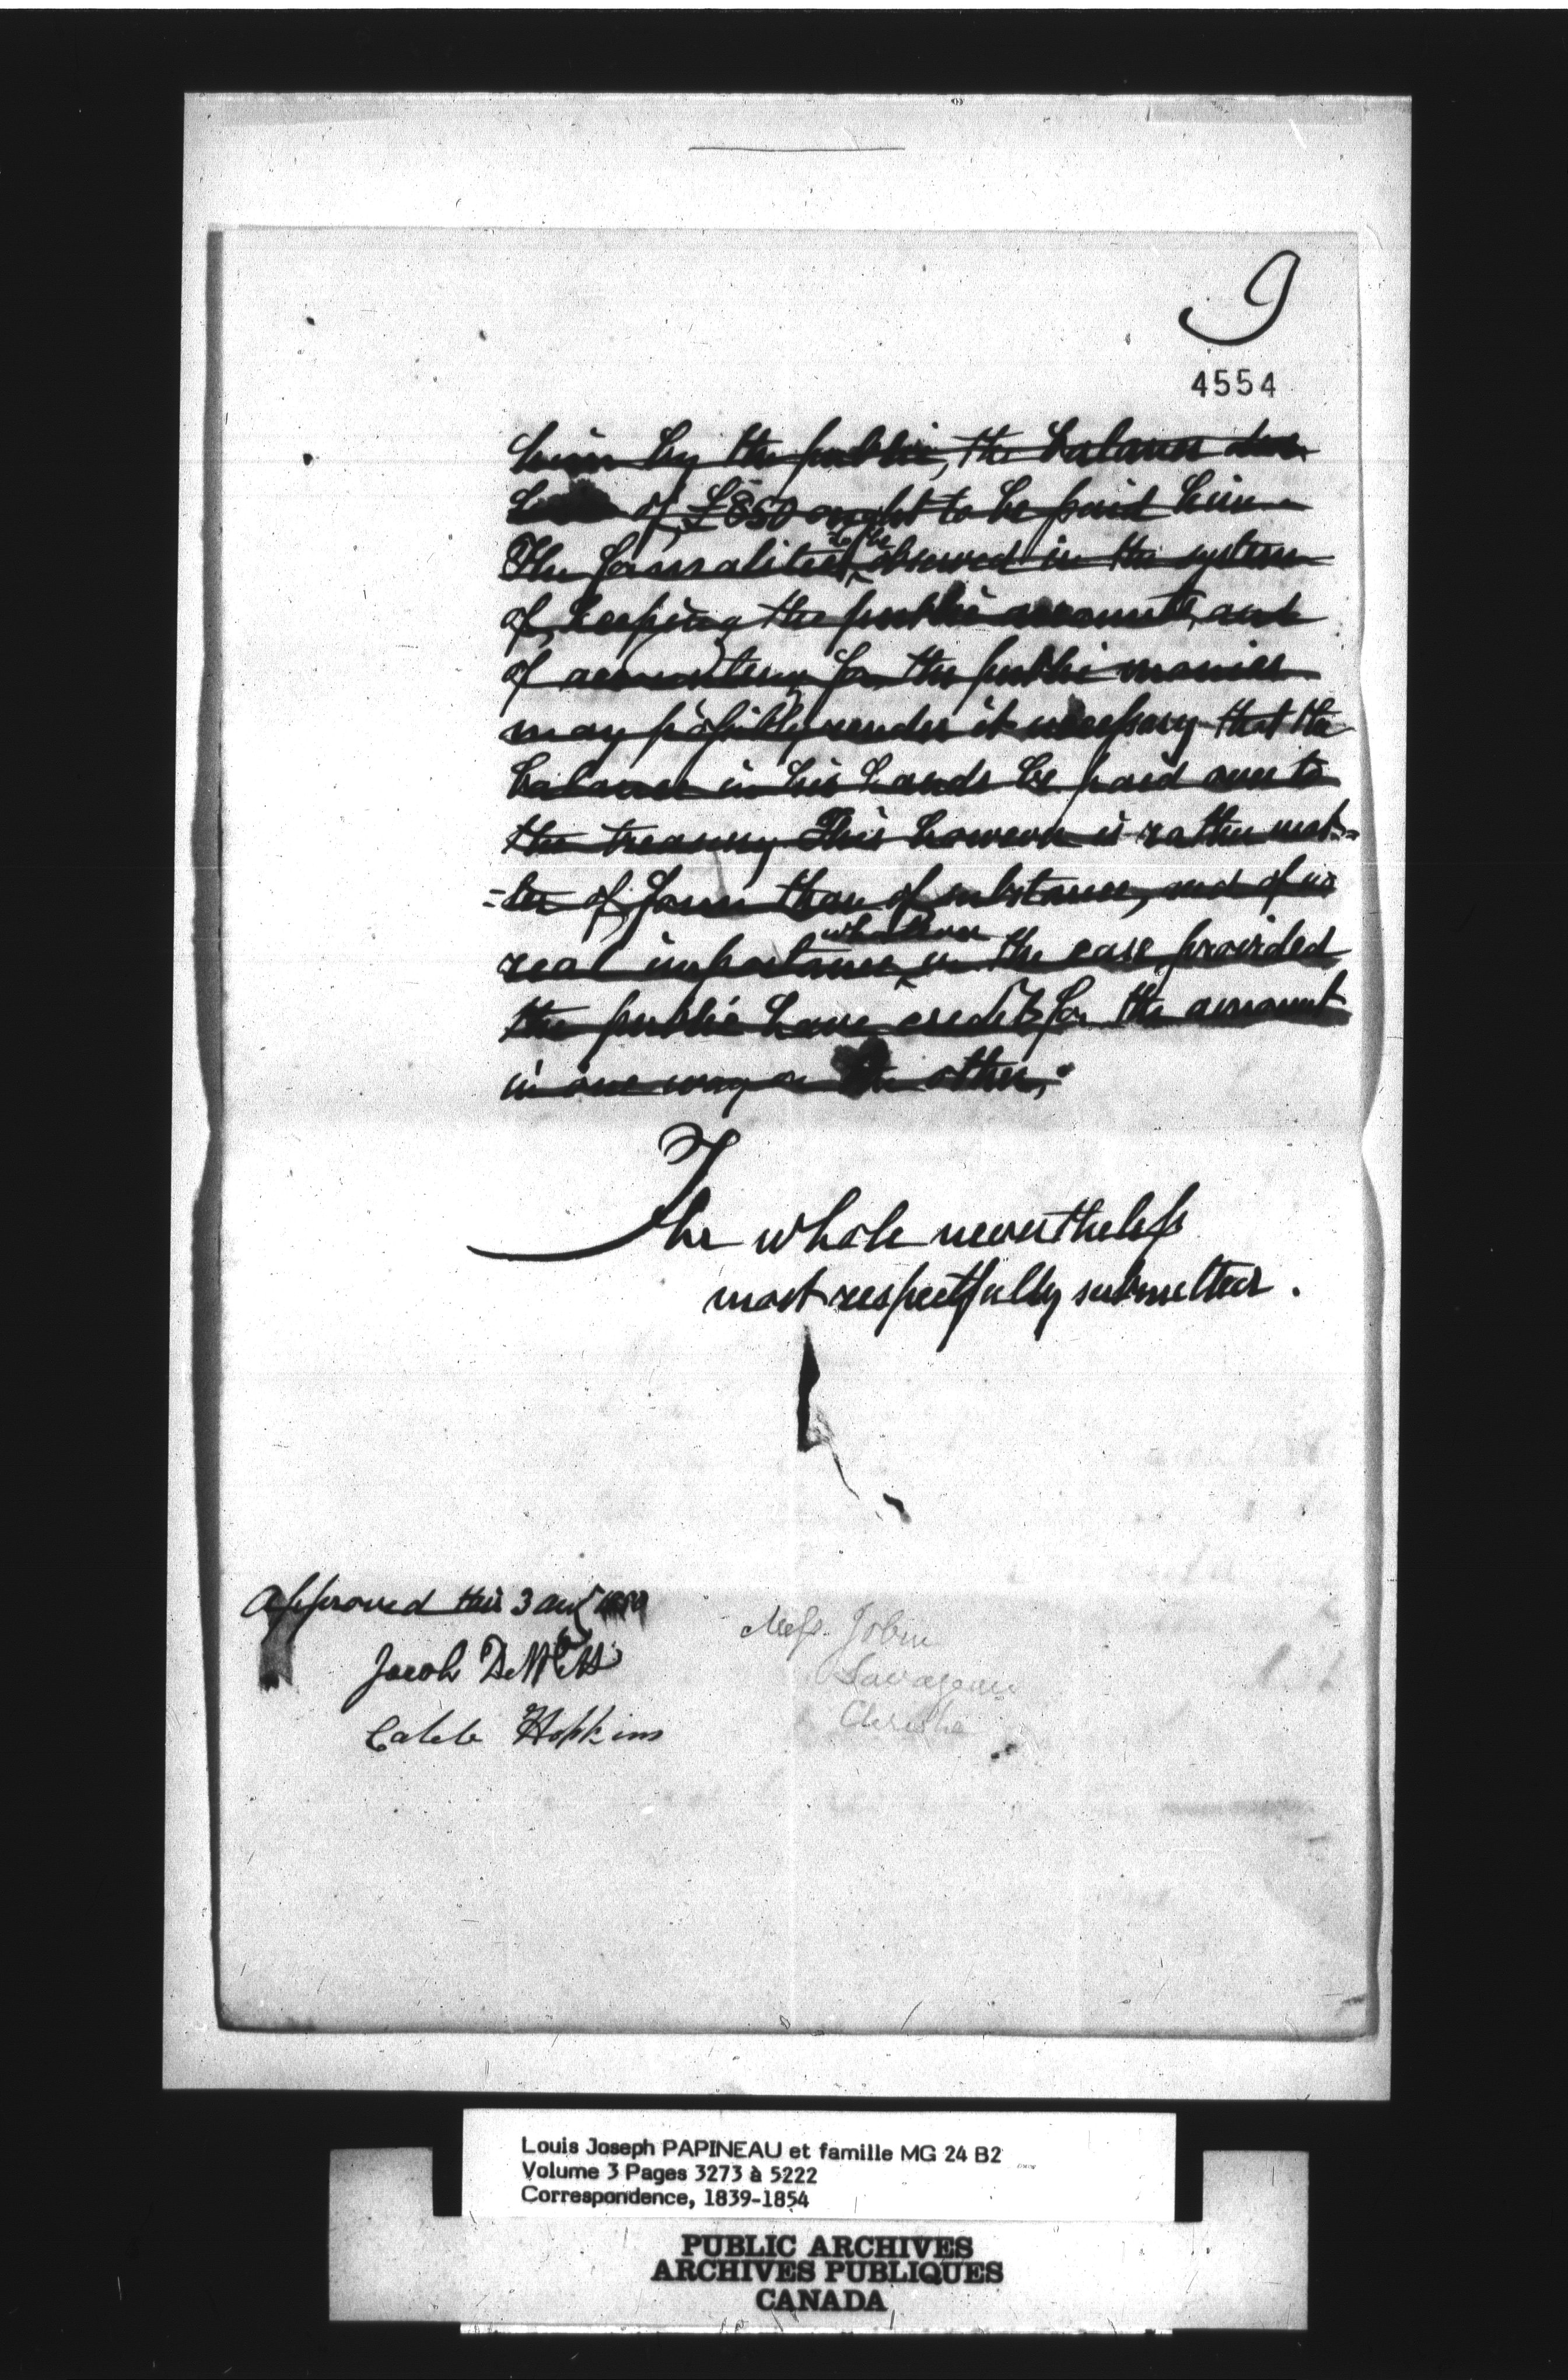 9
4554
him by the public, the balance due
of £850 ought to be paid him
The formalities to be observed in the system
of keeping the public accounts, and
of accounting for the public monies
may possibly render it necessary that the
balance in his hands be paid over to
the treasury This however is rather mat=
=ter of form than of substance, and of no
real importance whatever in the case provided
the public have credit for the amount
in one way or the other,
The whole nevertheless
most respectfully submitted.
Approved this 3 aug 1850
Jacob DeWitt
Caleb Hopkins
Mess. Jobin
Savageau
Christie
Louis Joseph PAPINEAU et famille MG 24 B2
Volume 3 Pages 3273 à 5222
Correspondence, 1839-1854
PUBLIC ARCHIVES
ARCHIVES PUBLIQUES
CANADA